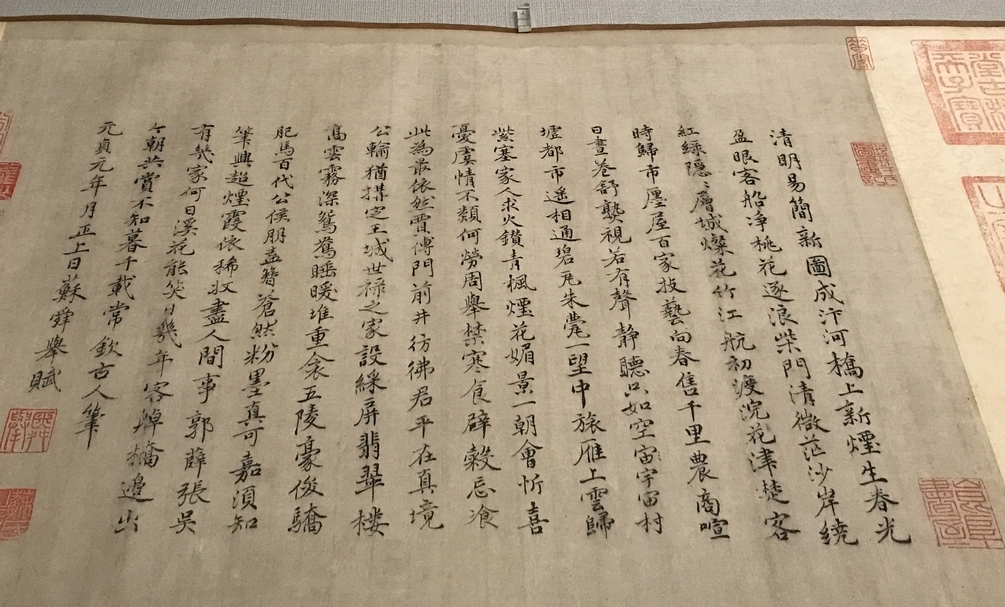 清明易簡新圖成汴河橋上新煙生春光
盈眼客船淨桃花逐浪柴門清微茫沙岸繞
紅綠隱〻層城燦花竹江航初渡浣花津楚客
時歸市廛屋百家技藝向春售千里農商喧
日晝卷舒褻視若有聲靜聽只如空宙宇宙村
墟都市遙相通碧瓦朱甍一望中旅雁上雲歸
紫塞家人求火鑽青楓煙花媚景一朝會忻喜
憂虞情不類何勞周舉禁寒食辟穀忘飡
此為最依然賈傅門前井彷彿君平在真境
公輪猶搆定王城世祿之家設綵屏翡翠樓
高雲霧深鴛鴦睡暖堆重衾五陵豪俊驕
肥馬百代公侯朋盍簪蒼然粉墨真可嘉須知
筆興超煙霞依稀收盡人間事郭薛張吳
有幾家何日溪花能笑日幾年客歸橋邊出
今朝共賞不知暮千載常欽古人筆
元貞元年月正上日蘇舜舉賦